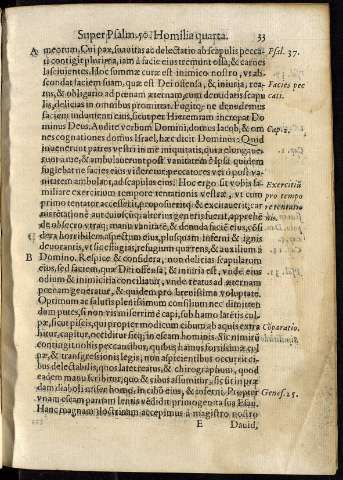 Super Psalm. 50. Homilia quarta. 33
A meorum, Qui pax, suauitas ac delectatio ab scapulis pecca- Psal. 37.
ti contigit plorira, iam à facie eius tremunt ossa, & carnes
lasciuientes. Hoc summæ curæ est inimico nostro, vt abs-
condat faciem suam, quæ est Dei offensa, & iniuria, rea- Facies pec
tus, & obligatio ad pœnam æternam, cum de
lis, delicias in omnibus promittat. Fugite, ne de
faciem induenti eius, sicut per Hieremiam increpat Do
minus Deus. Audite verbum Domini, domus Iacob, & om Cap. 2.
nes cognationes domus Israel, hæc dicit Dominus: Quid
inuenerunt patres vestri in me iniquitatis, quia elongaue
runt à me, & ambulauerunt post vanitatem? Ipsi quidem
fugiebat ne facies eius videretur, peccatores vel ò post va-
nitatem ambulant, ad scapulas eius. Hoc ergo sit vobis fa-
miliare exercitium tempore tentationis vestræ, vt cum Exercitiũ
primo tentator accesserit, proposueritq; & excitauerit, car pro tempo
nis tentationẽ aut cuiuscũq; alterius generis fuerit, apprehẽ re tentatio
de obsecro vtraq; manu vanitatẽ, & denuda facie eius, cõsi nis.
C dera horribilem aspectum eius, plusquam inferni & ignis
deuorantis, vt sic effugias, refugium quærens, & auxilium à
B Domino. Respice & considera, non delicias scapularum
eius, sed faciem, quæ Dei offensa, & iniuria est, vnde eius
odium & inimicitia conciliatur, vnde reatus ad æternam
pœnam generatur, & quidem pro breuissima voluptate.
Optimum ac salutis plenissimum consilium nec dimitten
dum putes, si non vis miserrimè capi, sub hamo latẽtis cul-
pæ, sicut piscis, qui propter modicum cibum ab aquis extra Cõparatio.
hitur, capitur, neciditur sicq; in escam hominis. Sic nimirũ
contingit nobis peccantibus, quibus hamus fortissimæ cul
pæ, & transgressionis legis, non aspicientibus occurrit ci-
bus delectabilis, quos latet reatus, & chirographum, quod
eadem manu scribitur, quo & cibus assumitur, sic sit in præ
dam diaboli miser homo, in cibũ eius, & inferni. Propter Genes. 25.
vnam escam parum lentis vedidit primogenita sua Esau.
Hanc magnam doctrinam accepimus à magistro nostro
E Dauid,